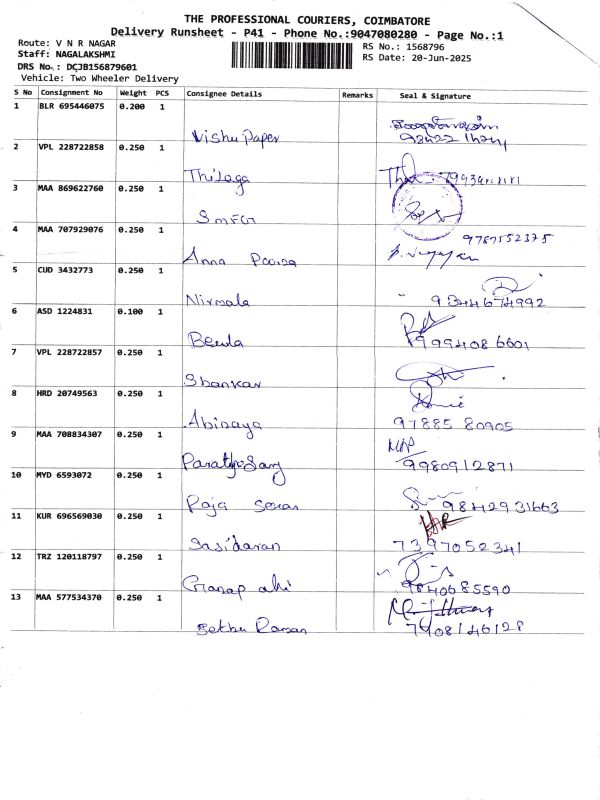 THE PROFESSIONAL COURIERS, COIMBATORE
Delivery Runsheet - P41 - Phone No.:9047080280 - Page No.:1
Route: V N R NAGAR
RS No.: 1568796
Staff: NAGALAKSHMI
RS Date: 20-Jun-2025
DRS No.: DCJB156879601
Vehicle: Two Wheeler Delivery
S No Consignment No Weight PCS Consignee Details Remarks Seal & Signature
1 BLR 695446075 0.200 1
Vishu Paper
2 VPL 228722858 0.250 1
Thilaga
3 MAA 869622760 0.250 1
SMFG
4 MAA 707929076 0.250 1 9787552375
Anna Poorsa
5 CUD 3432773 0.250 1
Nirmala 9344674992
6 ASD 1224831 0.100 1
Beula 9994086601
7 VPL 228722857 0.250 1
Shankar
8 HRD 20749563 0.250 1
Abinaya 97885 80905
9 MAA 708834307 0.250 1
9980912871
10 MYD 6593072 0.250 1
Raja 9842931663
11 KUR 696569030 0.250 1
Sasidaran 7397052341
12 TRZ 120118797 0.250 1
Ganap athi 9840685590
13 MAA 577534370 0.250 1
Sethu Raman 7408146128